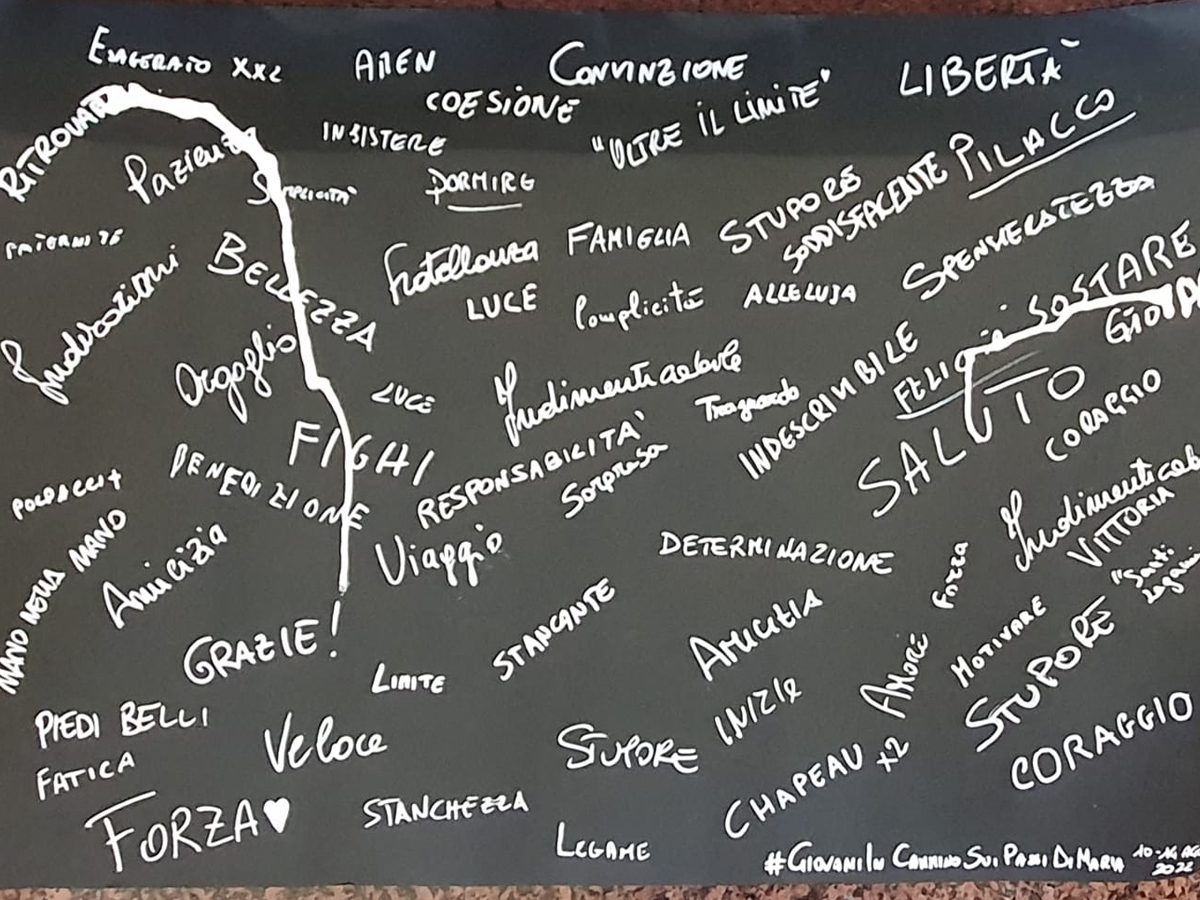 ESAGERATO XXL
AMEN
CONVINZIONE
LIBERTÀ
COESIONE
"OLTRE IL LIMITE"
RITROVATO
Pazienza
INSISTERE
PILACCO
SEMPLICITÀ
DORMIRE
STUPORE
SODDISFACENTE
SPENSIERATEZZA
PATERNITÀ
BELLEZZA
Fratellanza
FAMIGLIA
LUCE
Complicità
ALLELUJA
SOSTARE
GIOIA
Orgoglio
LUCE
Indimenticabile
Traguardo
INDESCRIVIBILE
FELICI
SALUTO
CORAGGIO
FIGHI
BENEDIZIONE
RESPONSABILITÀ
Sorpresa
POLPACCI
MANO NELLA MANO
Amicizia
Viaggio
DETERMINAZIONE
Forza
Indimenticab
VITTORIA
GRAZIE!
LIMITE
STANCANTE
AMICIZIA
INIZIO
AMORE
MOTIVARE
STUPORE
"Santi
PIEDI BELLI
FATICA
Veloce
STUPORE
CHAPEAU x2
CORAGGIO
FORZA♥
STANCHEZZA
LEGAME
#GIOVANI IN CAMMINO SUI PASSI DI MARIA